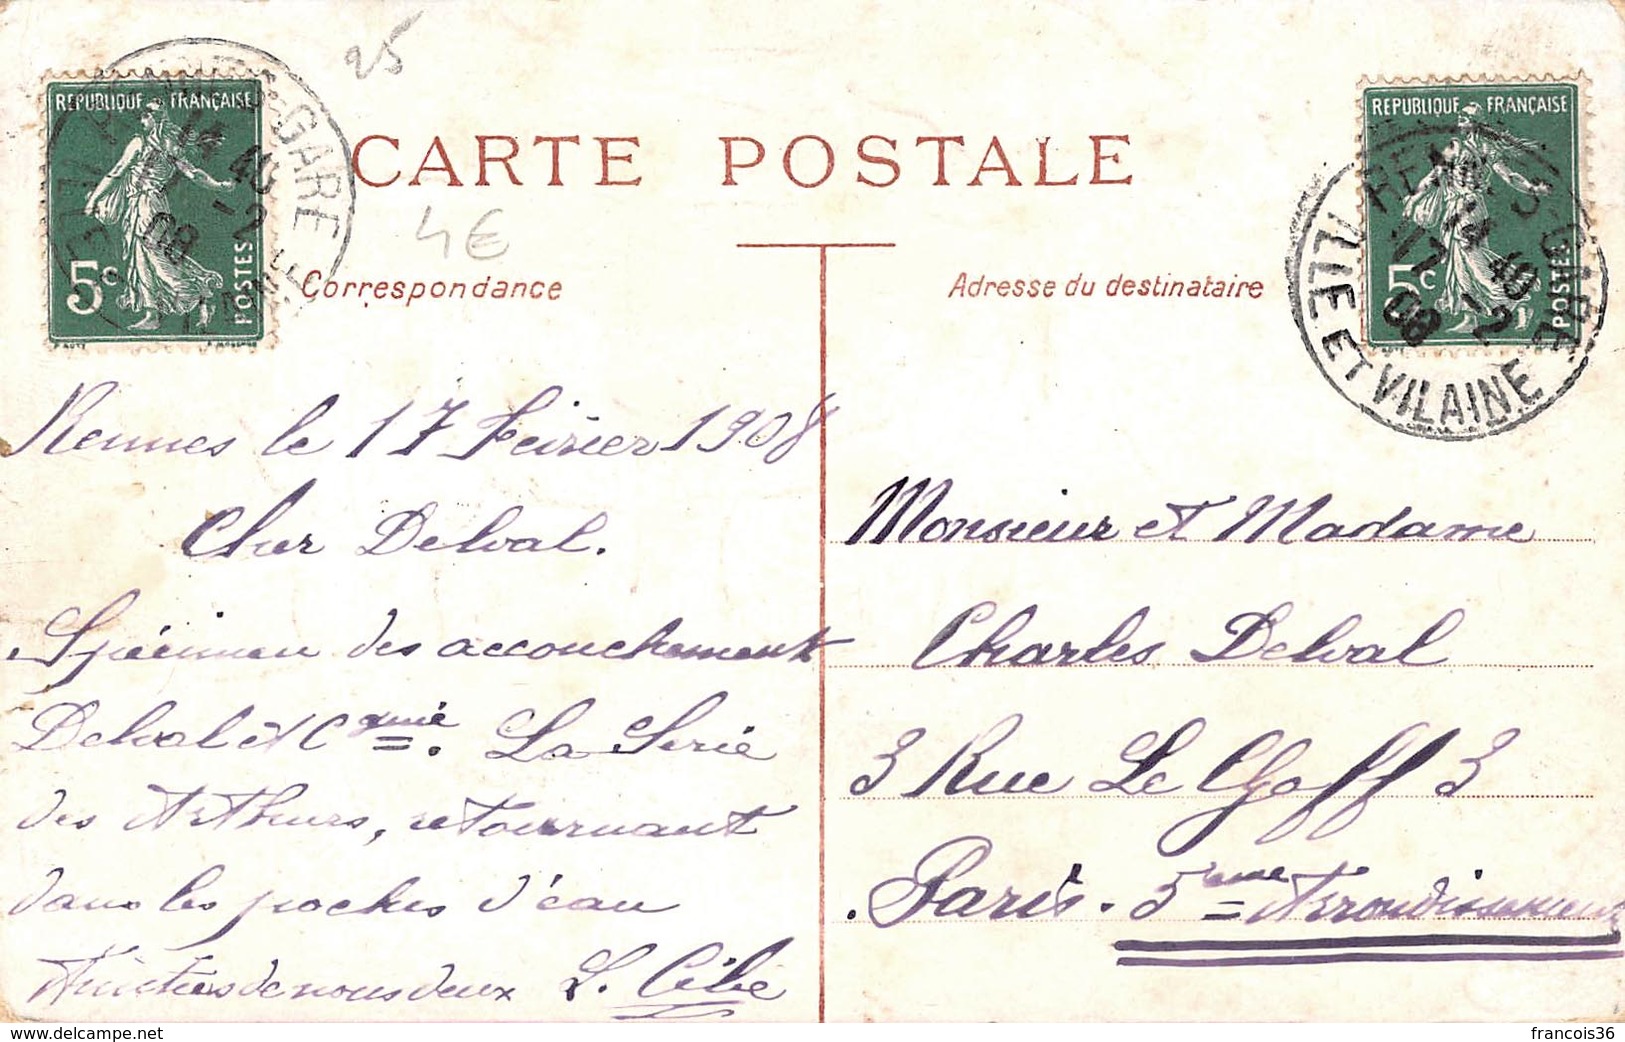 25
REPUBLIQUE FRANÇAISE
5c
POSTES
GARE
14 40
17 -2
08
CARTE POSTALE
4€
REPUBLIQUE FRANÇAISE
5c
POSTES
RENNES-GARE
14 40
17 -2
08
ILLE ET VILAINE
Correspondance
Adresse du destinataire
Rennes le 17 Février 1908
Cher Delval.
Spécimen des accouchements
Delval et Cgnie. La Serie
des Arthurs, retournant
dans les poches d'eau
Amitiés de nous deux L.
Monsieur et Madame
Charles Delval
3 Rue Le Goff 3
Paris. 5eme Arrondissement
francois36
delcampe.net